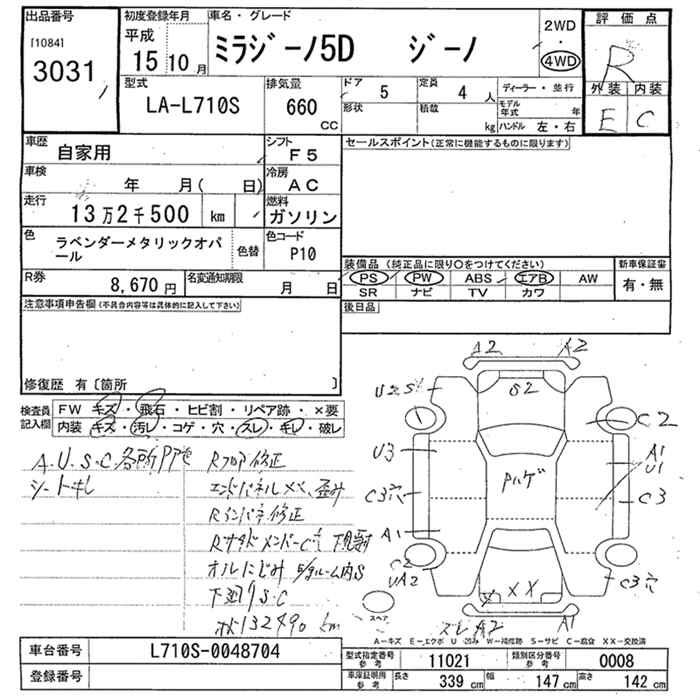 出品番号
[1084]
3031
初度登録年月
平成
15 10 月
車名・グレード
ミラジーノ5D ジーノ
2WD
4WD
評価点
R
外装 内装
E C
型式
LA-L710S
排気量
660
CC
ドア
5
形状
定員
4 人
積載
kg
ディーラー・並行
モデル年式 年
ハンドル 左・右
車歴
自家用
シフト
F5
車検
年 月( 日)
冷房
AC
走行
13万2千500 km
燃料
ガソリン
色
ラベンダーメタリックオパール
色替
色コード
P10
R券
8,670 円
名変通知期限
月 日
セールスポイント(正常に機能するものに限ります)
装備品 (純正品に限り○をつけてください)
PS PW ABS エアB AW
SR ナビ TV カワ
新車保証書
有・無
後日品
注意事項申告欄(不具合内容等は具体的に記入して下さい)
修復歴 有〔箇所 〕
検査員記入欄
FW キズ・飛石・ヒビ割・リペア跡・×要
内装 キズ・汚れ・コゲ・穴・スレ・キレ・破レ
A.U.S.C.各所
シートキレ
Rフロア修正
エンドパネルXX、歪み
Rインパネ修正
オルにじみ
下廻りS.C
132490 km
A2 A2
U2S S2
C2
U3
A1
U1
Pハゲ
C3穴
C3
A1
C2
UA2
XX
C3穴
スペア
スレA2 A1
A-キズ E-エクボ U-凹み W-補修跡 S-サビ C-腐食 XX-交換済
車台番号
L710S-0048704
登録番号
型式指定番号参考
11021
類別区分番号参考
0008
車庫証明用参考
長さ 339 cm
幅 147 cm
高さ 142 cm